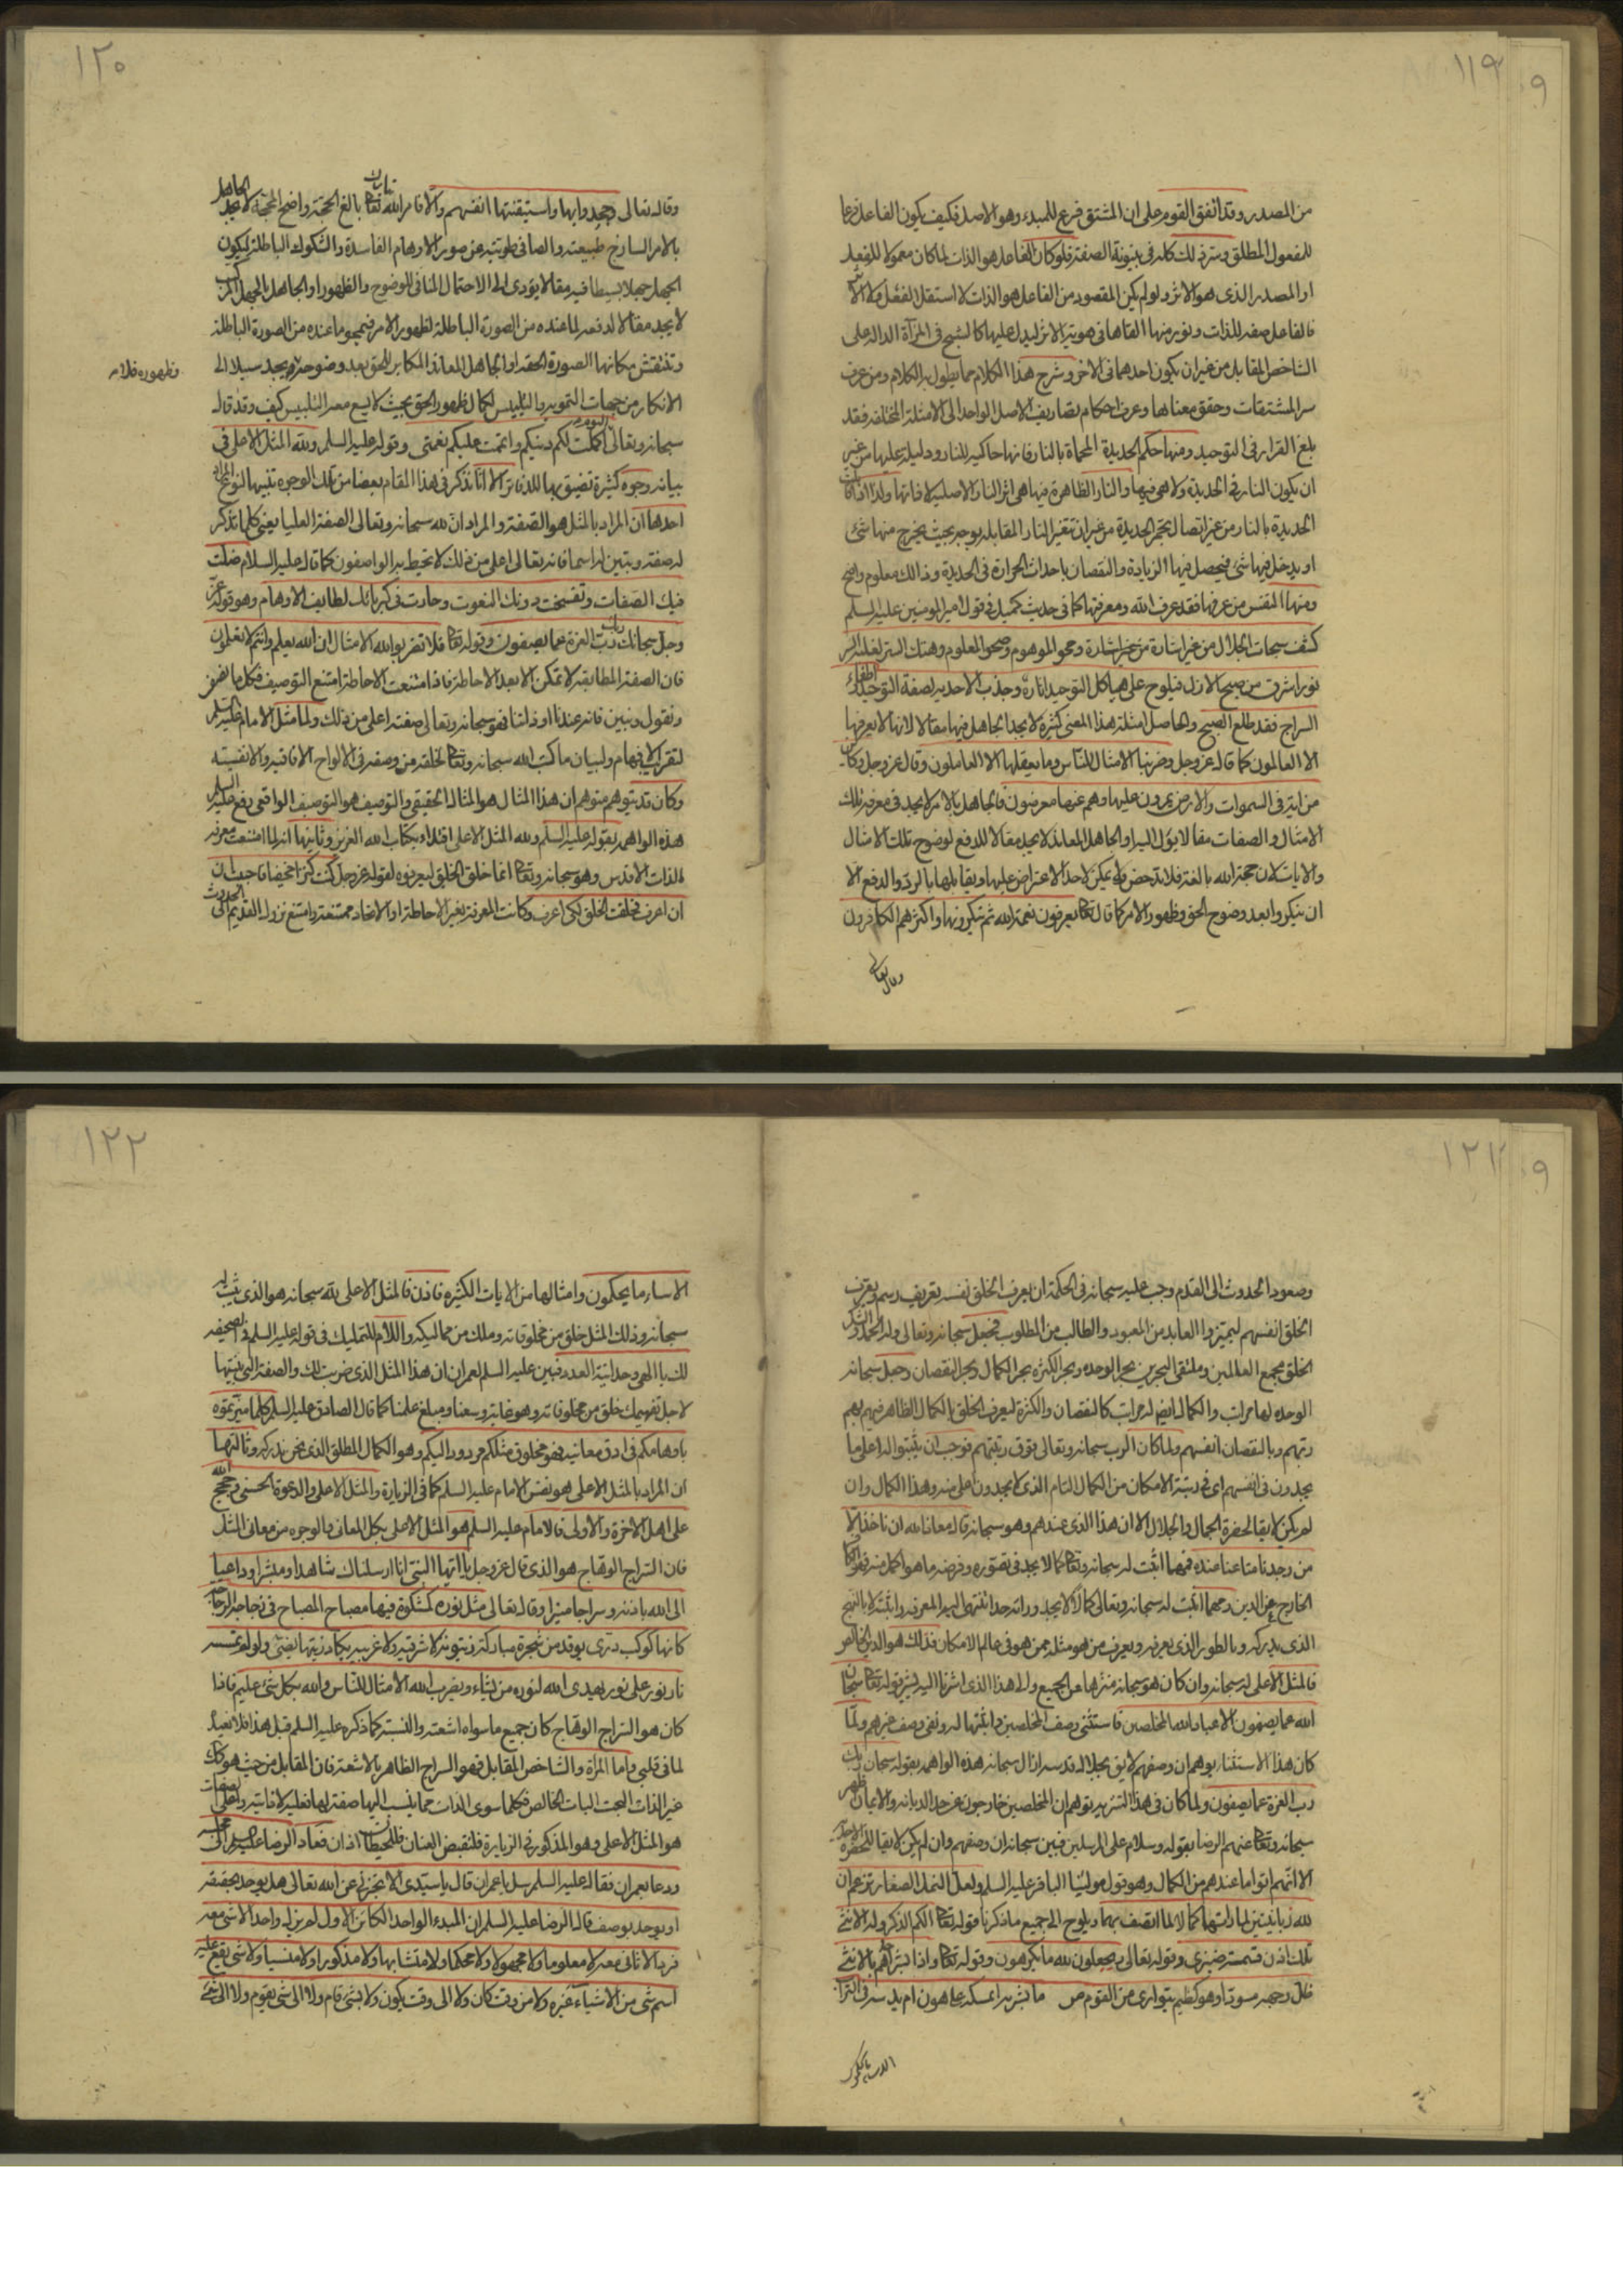 ١١٩
من المصدر وقد اتفق القوم على ان المشتق فرع للمبدء وهو الاصل فكيف يكون الفاعل فرعا
للمفعول المطلق وسر ذلك كله في بينونة الصفة فلو كان الفاعل هو الذات لما كان معمولا للفعل
او المصدر الذى هو الاثر ولو لم يكن المقصود من الفاعل هو الذات لا استقل الفعل
فالفاعل صفة للذات ونور منها القاها فى هوية الاثر ليدل عليها كالشبح فى المرآة الدالة على
الشاخص المقابل من غير ان يكون احدهما فى الاخر وشرح هذا الكلام مما يطول به الكلام ومن عرف
سر المشتقات وحقق معناها وعرف احكام تصاريف الاصل الواحد الى الامثلة المختلفة فقد
بلغ القرار فى التوحيد ومنها حكم الحديدة المحماة بالنار فانها حاكية للنار ودليلة عليها من غير
ان يكون النار فى الحديدة ولا هى فيها والنار الظاهرة فيها هى اثر النار الاصلية لا ذاتها ولذا اذا قابلت
الحديدة بالنار من غير اتصال تحمر الحديدة من غير ان تتغير النار المقابلة بوجه بحيث يخرج منها شئ
او يدخل فيها شئ فيحصل فيها الزيادة والنقصان باحداث الحرارة فى الحديدة وذلك معلوم واضح
ومنها النفس من عرفها فقد عرف الله ومعرفتها كما فى حديث كميل فى قول امير المومنين عليه السلم
كشف سبحات الجلال من غير اشارة ومحو الموهوم وصحو المعلوم وهتك الستر لغلبة السر
نور اشرق من صبح الازل فيلوح على هياكل التوحيد اثاره وجذب الاحدية لصفة التوحيد اطفاء
السراج فقد طلع الصبح والحاصل امثلة هذا المعنى كثيرة لا يجد الجاهل فيها مقالا لانها لا يعرفها
الا العالمون كما قال عز وجل وضربنا الامثال للناس وما يعقلها الا العالمون وقال عز وجل وكاين
من اية فى السموات والارض يمرون عليها وهم عنها معرضون فالجاهل بالامر لا يجد فى معرفة تلك
الامثال والصفات مقالا يؤل اليه والجاهل المعاند لا يجد مقالا للدفع لوضوح تلك الامثال
والايات لان حجة الله بالغة فلا تدحض ولا يمكن لاحد الاعتراض عليها ويقابلها بالرد والدفع الا
ان ينكروا بعد وضوح الحق وظهور الامر كما قال تعالى يعرفون نعمة الله ثم ينكرونها واكثرهم الكافرون
وقال تعالى
١٢٠
وقال تعالى وجحدوا بها واستيقنتها انفسهم والا فامر الله تعالى بالغ الحجة واضح المحجة لا يجد الجاهل
بالامر الساذج طبيعته والصافى طويته عن صور الاوهام الفاسدة والشكوك الباطلة ليكون
الجهل جهلا بسيطا فيه مقالا يؤدى الى الاحتمال المنافى للوضوح والظهور او الجاهل بالجهل المركب
لا يجد مقالا لدفعه لما عنده من الصورة الباطلة لظهور الامر فيمحو ما عنده من الصورة الباطلة
وتنتقش مكانها الصورة الحقة او الجاهل المعاند المكابر للحق بعد وضوحه يجد سبيلا الى
وظهوره فلا
الانكار من جهات التمويه والتلبيس لكمال ظهور الحق بحيث لا يسع معه التلبيس كيف وقد قال
سبحانه وتعالى اليوم اكملت لكم دينكم واتممت عليكم نعمتى وقوله عليه السلم ولله المثل الاعلى فى
بيانه وجوه كثيرة تضيق بها الدفاتر الا انا نذكر فى هذا المقام بعضا من تلك الوجوه تنبيها
احدها ان المراد بالمثل هو الصفة والمراد ان لله سبحانه وتعالى الصفة العليا يعنى كلما تذكر
له صفة وبتبين له اسما فانه تعالى اعلى من ذلك لا تحيط به الواصفون كما قال عليه السلام ضلت
فيك الصفات وتفسخت دونك النعوت وحارت فى كبريائك لطايف الاوهام وهو قوله عز
وجل سبحان ربك رب العزة عما يصفون وقوله تعالى فلا تضربوا لله الامثال ان الله يعلم وانتم لا تعلمون
فان الصفة المطابقة لا تمكن الا بعد الاحاطة فاذا امتنعت الاحاطة امتنع التوصيف فكل ما
ونقول ونبين فانه عندنا او ذلتنا فهو سبحانه وتعالى صفته اعلى من ذلك ولما مثل الامام عليه السلم
لتقريب الافهام ولبيان ما كتب الله سبحانه وتعالى لخلقه من وصفه فى الالواح الافاقية والانفسية
وكان قد يتوهم متوهم ان هذا المثال هو المثال الحقيقى والتوصيف هو التوصيف الواقعى دفع عليه السلم
هذه الواهمة بقوله عليه السلم ولله المثل الاعلى اقتداء بكتاب الله العزيز وثانيها انه لما امتنعت معرفة
الذات الاقدس وهو سبحانه وتعالى انما خلق الخلق ليعرفوه لقوله عز وجل كنت كنزا مخفيا فاحببت ان
ان اعرف فخلقت الخلق لكى اعرف وكانت المعرفة بغير الاحاطة او الاتحاد ممتنعة وامتنع نزول القديم الى الحدوث
١٢١
وصعود الحدوث الى القدم وجب عليه سبحانه فى الحكمة ان يعرف الخلق نفسه تعريف رسم ويعرف
الخلق انفسهم ليميزوا العابد من المعبود والطالب من المطلوب فجعل سبحانه وتعالى وله الحمد والشكر
الخلق مجمع العالمين وملتقى البحرين بحر الوحدة وبحر الكثرة بحر الكمال وبحر النقصان وجعل سبحانه
الوحدة لها مراتب والكمال ايضا له مراتب كالنقصان والكثرة ليعرف الخلق بالكمال الظاهر فيهم بهم
ربهم وبالنقصان انفسهم ولما كان الرب سبحانه وتعالى فوق رتبتهم فوجب ان يثبتوا له اعلى ما
يجدون فى انفسهم اى فى رتبة الامكان من الكمال التام الذى لا يجدون اعلى منه وهذا الكمال وان
لم يكن لايقا لحضرة الجمال والجلال الا ان هذا الذى عندهم وهو سبحانه قال معاذ الله ان ناخذ الا
من وجدنا متاعنا عنده فمهما اثبت له سبحانه وتعالى كمالا يجد فى تصوره وفرضه ما هو اكمل منه فهو
الخارج عن الدين ومهما اثبت له سبحانه وتعالى كمالا لا يجد وراءه حدا تنتهى اليه المعرفة واثبته لا بالنهج
الذى يدركه وبالطور الذى يعرفه ويعرف من هو مثله ممن هو فى عالم الامكان فذلك هو الدين الخالص
فالمثل الاعلى له سبحانه وان كان هو سبحانه منزها عن الجميع والى هذا الذى اشرنا اليه يشير قوله تعالى سبحان
الله عما يصفون الا عباد الله المخلصين فاستثنى وصف المخلصين واثبتها له ونفى وصف غيرهم ولما
كان هذا الاستثناء يوهم ان وصفهم لايق بجلال قدسه ازال سبحانه هذه الواهمة بقوله سبحان ربك
رب العزة عما يصفون ولما كان فى هذا التنزيه توهم ان المخلصين خارجون عن حد الديانة والايمان اظهر
سبحانه وتعالى عنهم الرضا بقوله وسلام على المرسلين فبين سبحانه ان وصفهم وان لم يكن لايقا للحضرة الاحدية
الا انهم اتوا ما عندهم من الكمال وهو قول مولينا الباقر عليه السلم ولعل النمل الصغار تزعم ان
لله زبانيتين لما راتهما كمالا لما اتصف بهما ويلوح الى جميع ما ذكرنا قوله تعالى الكم الذكر وله الانثى
تلك اذن قسمة ضيزى وقوله تعالى ويجعلون لله ما يكرهون وقوله تعالى واذا بشر احدهم بالانثى
ظل وجهه مسودا وهو كظيم يتوارى من القوم من ما بشر به ايمسكه على هون ام يدسه فى التراب
١٢٢
الا ساء ما يحكمون وامثالها من الايات الكثيرة فاذن فالمثل الاعلى لله سبحانه هو الذى يثبت له
سبحانه وذلك المثل خلق من مخلوقاته وملك من مماليكه واللام للتمليك فى قوله عليه السلم فى الصحيفة
لك يا الهى وحدانية العدد فبين عليه السلم لعمران ان هذا المثل الذى ضربت لك والصفة التى بينتها
لاجل تفهيمك خلق من مخلوقاته وهو غاية وسعنا ومبلغ علمنا كما قال الصادق عليه السلم كلما ميزتموه
باوهامكم فى ادق معانيه فهو مخلوق مثلكم مردود اليكم وهو الكمال المطلق الذى نحن ندركه وثالثها
ان المراد بالمثل الاعلى هو نفس الامام عليه السلم كما فى الزيارة والمثل الاعلى والدعوة الحسنى وحجج الله
على اهل الاخرة والاولى فالامام عليه السلم هو المثل الاعلى بكل المعانى والوجوه من معانى المثل
فان السراج الوهاج هو الذى قال عز وجل يا ايها النبى انا ارسلناك شاهدا ومبشرا وداعيا
الى الله باذنه وسراجا منيرا وقال تعالى مثل نوره كمشكوة فيها مصباح المصباح فى زجاجة الزجاجة
كانها كوكب درى يوقد من شجرة مباركة زيتونة لا شرقية ولا غربية يكاد زيتها يضئ ولو لم تمسسه
نار نور على نور يهدى الله لنوره من يشاء ويضرب الله الامثال للناس والله بكل شئ عليم فاذا
كان هو السراج الوهاج كان جميع ما سواه اشعته والنسبة كما ذكره عليه السلم قبل هذا
لما فى قلبى واما المرآة والشاخص المقابل فهو السراج الظاهر بالاشعة فان المقابل من حيث هو كذلك
غير الذات البحت البات الخالص فكلما سوى الذات مما ينسب اليها صفة لها فعلية لا ذاتية واعلى الصفات
هو المثل الاعلى وهو المذكور فى الزيارة فلنقبض العنان فللحيطان اذان فعاد الرضا عليه السلم الى مجلسه
ودعا بعمران فقال عليه السلم سل يا عمران قال يا سيدى الا تخبرنى عن الله تعالى هل يوحد بحقيقته
او يوحد بوصف قال الرضا عليه السلم ان المبدء الواحد الكائن الاول لم يزل واحدا لا شئ معه
فردا لا ثانى معه لا معلوما ولا مجهولا ولا محكما ولا متشابها ولا مذكورا ولا منسيا ولا شئ يقع عليه
اسم شئ من الاشياء غيره ولا من وقت كان ولا الى وقت يكون ولا بشئ قام ولا الى شئ يقوم ولا الى شئ